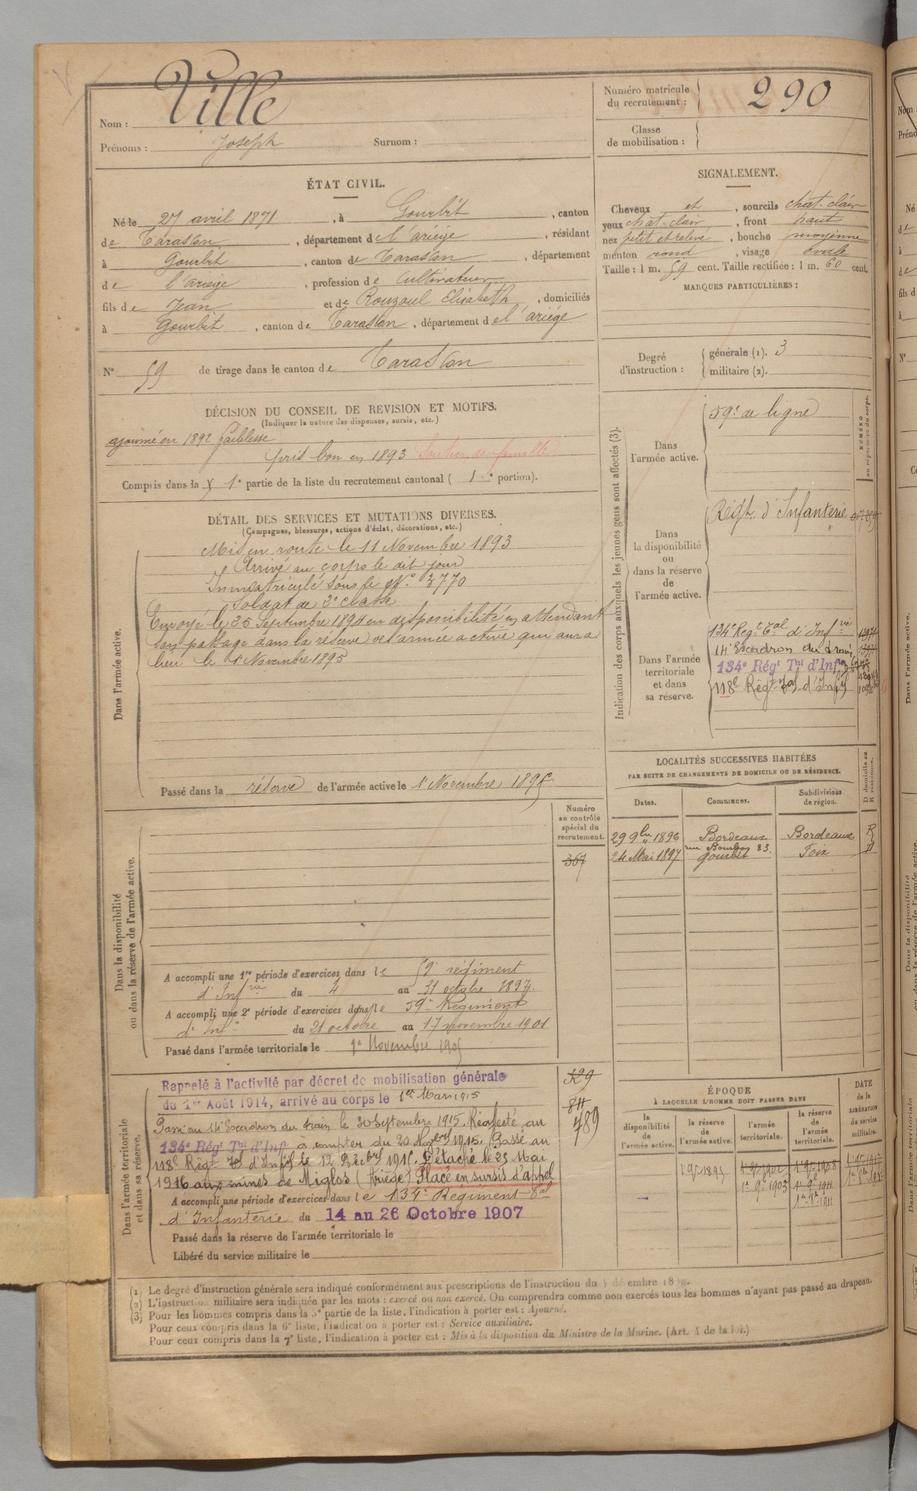 Nom : Ville
Prénoms : Joseph Surnom :
Numéro matricule du recrutement : 290
Classe de mobilisation :
ÉTAT CIVIL.
Né le 27 avril 1871, à Gourbit, canton
de Tarascon, département de l'ariège, résidant
à Gourbit, canton de Tarascon, département
de l'ariège, profession de Cultivateur
fils de Jean et de Rouzoul Elisabeth, domiciliés
à Gourbit, canton de Tarascon, département de l'ariége
N° 59 de tirage dans le canton de Tarascon
SIGNALEMENT.
Cheveux et, sourcils chat. clair
yeux chat. clair, front haut
nez petit et relevé, bouche moyenne
menton rond, visage ovale
Taille : 1 m. 59 cent. Taille rectifiée : 1 m. 60 cent.
MARQUES PARTICULIÈRES :
Degré d'instruction : générale (1). 3
militaire (2).
DÉCISION DU CONSEIL DE REVISION ET MOTIFS.
(Indiquer la nature des dispenses, sursis, etc.)
ajourné en 1892 faiblesse
pris bon en 1893 Soutien de famille
Compris dans la 1e partie de la liste du recrutement cantonal ( 1e portion).
DÉTAIL DES SERVICES ET MUTATIONS DIVERSES.
(Campagnes, blessures, actions d'éclat, décorations, etc.)
Dans l'armée active.
Mis en route le 11 Novembre 1893
Arrivé au corps le dit jour
Immatriculé sous le N° 3770
Soldat de 2e classe
Envoyé le 25 Septembre 1894 en disponibilité en attendant
son passage dans la réserve de l'armée active qui aura
lieu le 1 Novembre 1895
Passé dans la réserve de l'armée active le 1 Novembre 1895
Indication des corps auxquels les jeunes gens sont affectés (3).
Dans l'armée active.
59e de ligne
Dans la disponibilité ou dans la réserve de l'armée active.
Régt. d'Infanterie
Dans l'armée territoriale et dans sa réserve.
134e Régt Tal d'Infie
14e Escadron du train
134e Régt Tal d'Infie
118e Régt Tal d'Infie
LOCALITÉS SUCCESSIVES HABITÉES
PAR SUITE DE CHANGEMENTS DE DOMICILE OU DE RÉSIDENCE.
Dates. Communes. Subdivisions de région. D domicile ou R résidence.
29 9bre 1896 Bordeaux rue Bourbon 83. Bordeaux R
24 Mai 1897 Gourbit Foix D
Numéro au contrôle spécial du recrutement.
367
Dans la disponibilité ou dans la réserve de l'armée active.
A accompli une 1re période d'exercices dans le 59e régiment
d'Infrie du 4 au 31 octobre 1897.
A accompli une 2e période d'exercices dans le 59e Régiment
d'Infie du 21 octobre au 17 novembre 1901
Passé dans l'armée territoriale le 1er Novembre 1905
Dans l'armée territoriale et dans sa réserve.
329
84
489
Rappelé à l'activité par décret de mobilisation générale
du 1er Août 1914, arrivé au corps le 1er Mars 1915
Passé au 14e Escadron du train le 30 Septembre 1915. Réaffecté au
134e Régt Tal d'Infie à compter du 20 Novbre 1915. Passé au
118e Régt Tal d'Infie le 12 Décbre 1915. Détaché le 25 Mai
1916 aux mines de Miglos (Ariège) Placé en sursis d'appel
A accompli une période d'exercices dans le 134e Régiment Tal
d'Infanterie du 14 au 26 Octobre 1907
Passé dans la réserve de l'armée territoriale le
Libéré du service militaire le
ÉPOQUE
À LAQUELLE L'HOMME DOIT PASSER DANS
la disponibilité de l'armée active. la réserve de l'armée active. l'armée territoriale. la réserve de l'armée territoriale. DATE de la LIBÉRATION du service militaire.
(1) Le degré d'instruction générale sera indiqué conformément aux prescriptions de l'instruction du
(2) L'instruction militaire sera indiquée par les mots : exercé ou non exercé. On comprendra comme non exercés tous les hommes n'ayant pas passé au drapeau.
(3) Pour les hommes compris dans la 5e partie de la liste, l'indication à porter est : Ajourné.
Pour ceux compris dans la 6e liste, l'indication à porter est : Service auxiliaire.
Pour ceux compris dans la 7e liste, l'indication à porter est : Mis à la disposition du Ministre de la Marine. (Art. 4 de la loi.)